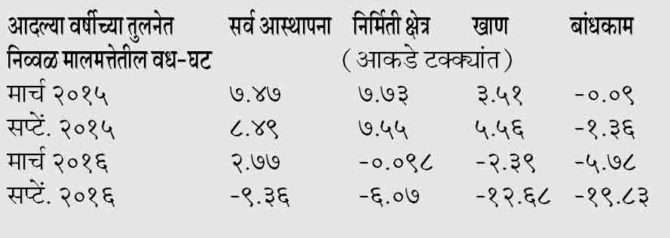 आदल्या वर्षीच्या तुलनेत सर्व आस्थापना निर्मिती क्षेत्र खाण बांधकाम
निव्वळ मालमत्तेतील वध-घट (आकडे टक्क्यांत)
मार्च २०१५ ७.४७ ७.७३ ३.५१ -०.०९
सप्टें. २०१५ ८.४९ ७.५५ ५.५६ -१.३६
मार्च २०१६ २.७७ -०.०९८ -२.३९ -५.७८
सप्टें. २०१६ -९.३६ -६.०७ -१२.६८ -१९.८३